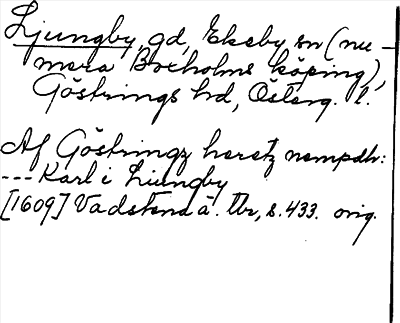 Ljungby, gd, Ekeby sn (nu-
mera Boxholms köping),
Göstrings hd, Österg. l.
Af Göstringz heretz nempdh:
--- Karl i Liungby
[1609] Vadstena ä. tbr, s. 433. orig.